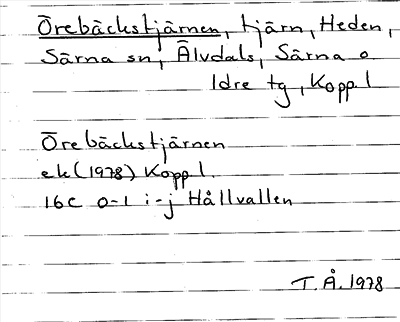 Örebäckstjärnen, tjärn, Heden,
Särna sn, Älvdals, Särna o.
Idre tg, Kopp.l
Örebäckstjärnen
ek (1978) Kopp l.
16C 0-1 i-j Hållvallen
T.Å. 1978